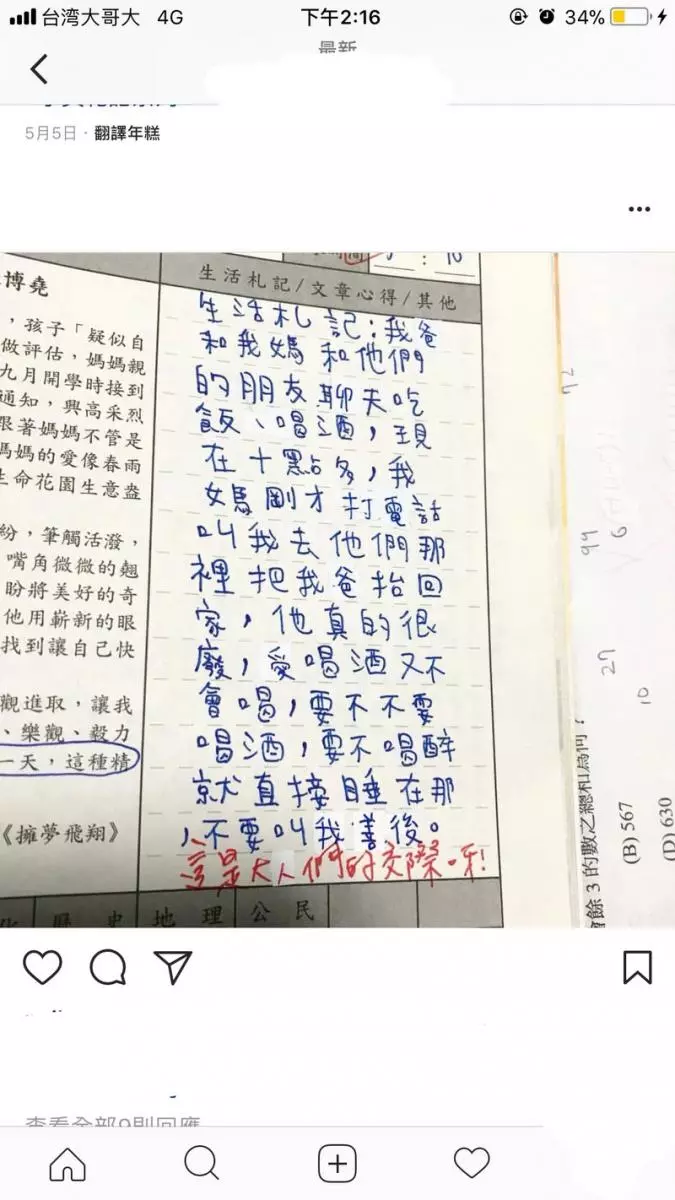 台湾大哥大 4G 下午2:16 34%
最新
5月5日 · 翻譯年糕
生活札記/文章心得/其他
博堯
，孩子「疑似自
做評估，媽媽親
九月開學時接到
通知，興高采烈
跟著媽媽不管是
媽媽的愛像春雨
生命花園生意盎
紛，筆觸活潑，
嘴角微微的翹
盼將美好的奇
他用嶄新的眼
找到讓自己快
觀進取，讓我
、樂觀、毅力
一天，這種精
《擁夢飛翔》
生活札記：我爸
和我媽和他們
的朋友聊天吃
飯、喝酒，現
在十點多，我
媽剛才打電話
叫我去他們那
裡把我爸抬回
家，他真的很
廢，愛喝酒又不
會喝，要不不要
喝酒，要不喝醉
就直接睡在那
，不要叫我善後。
這是大人們的交際呀！
歷史 地理 公民
72
99
6
27
10
餘 3 的數之總和為何？
(B) 567
(D) 630
查看全部9則回應